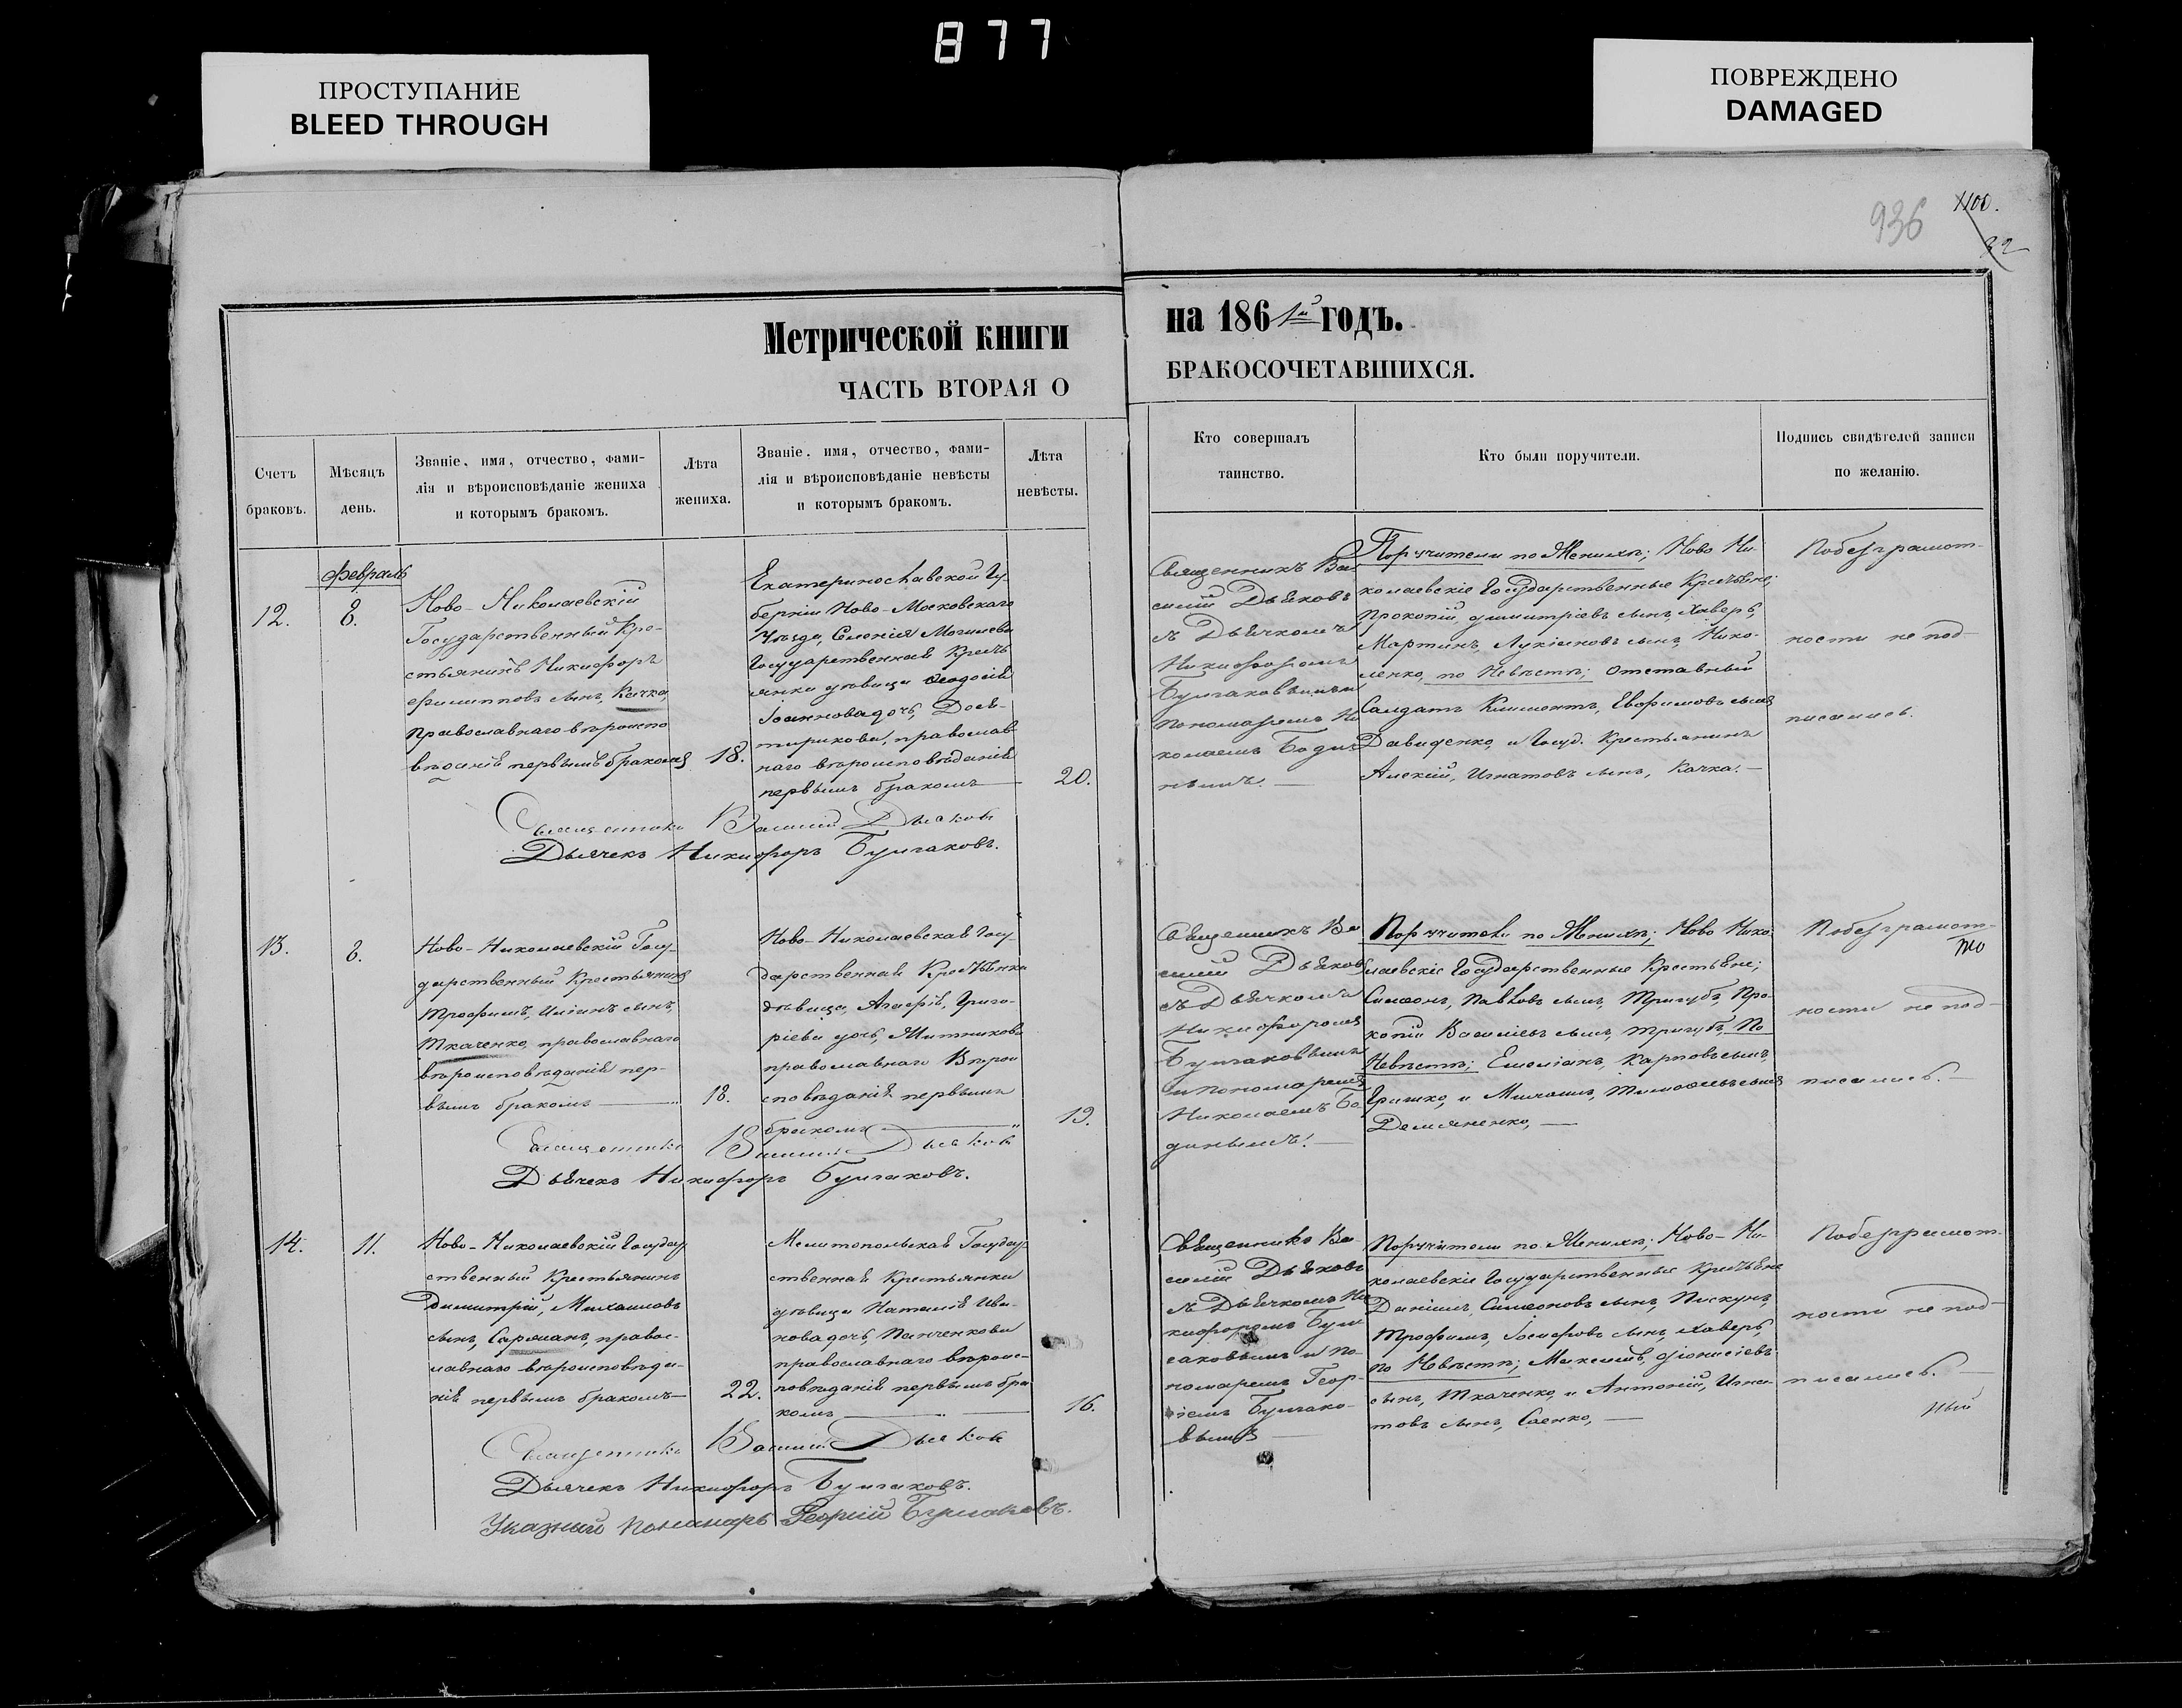 877
ПРОСТУПАНИЕ
BLEED THROUGH
ПОВРЕЖДЕНО
DAMAGED
936
1100.
32
Метрической книги
ЧАСТЬ ВТОРАЯ О
на 186 1й годъ.
БРАКОСОЧЕТАВШИХСЯ.
Счетъ
браковъ.
Мѣсяцъ
день.
Званіе, имя, отчество, фами-
лія и вѣроисповѣданіе жениха
и которымъ бракомъ.
Лѣта
жениха.
Званіе, имя, отчество, фами-
лія и вѣроисповѣданіе невѣсты
и которымъ бракомъ.
Лѣта
невѣсты.
Кто совершалъ
таинство.
Кто были поручители.
Подпись свидѣтелей записи
по желанію.
Февраль
12.
8.
Ново-Николаевскій
Государственный Кре-
стьянинъ Никифоръ
Филипповъ сынъ, Качка,
православнаго вѣроиспо
вѣданія первымъ бракомъ
18.
Екатеринославской Гу-
берніи Ново-Московскаго
Уѣзда, Селенія
Государственная Кресть
янка дѣвица Феодосія
Іоаннова дочь,
православ-
наго вѣроисповѣданія
первымъ бракомъ
20.
Священникъ Ва-
силій Дьяковъ
съ Дьячкомъ
Никифоромъ
Булгаковымъ и
Пономаремъ Ни
колаемъ Боди-
нымъ.
Поручители по Женихѣ; Ново Ни-
колаевскіе Государственные Крестьяне;
Прокопій, Димитріевъ сынъ, Хаверъ,
Мартинъ, Лукіяновъ сынъ, Нико-
ленко, по Невѣстѣ; Отставный
Салдатъ Климентъ, Евфимовъ сынъ
Давиденко, и Госуд. Крестьянинъ
Алексій, Игнатовъ сынъ, Качка.
Побезграмот-
ности не под-
писались.
Священникъ Василій Дьяковъ
Дьячекъ Никифоръ Булгаковъ.
13.
8.
Ново-Николаевскій Госу-
дарственный Крестьянинъ
Трофимъ, Илiинъ сынъ,
Ткаченко, православнаго
вѣроисповѣданія пер-
вымъ бракомъ
18.
Ново-Николаевская Госу-
дарственная Крестьянка
дѣвица, Агафія, Григо-
ріева дочь, Митникова
православнаго Вѣрои
сповѣданія первымъ
бракомъ
19.
Священникъ Ва
силій Дьяковъ
съ Дьячкомъ
Никифоромъ
Булгаковымъ
и пономаремъ
Николаемъ Бо-
динымъ.
Поручители по Женихѣ; Ново Нико-
лаевскіе Государственные Крестьяне;
Симеонъ, Павловъ сынъ, Тригубъ, Про-
копій Васильевъ сынъ, Тригубъ По
Невѣстѣ; Емеліанъ, Карповъ сынъ,
Гришко, и Михаилъ, Тимофеевъ сынъ
Демьяненко,
Побезграмот-
ности не под-
писались.
Священникъ Василій Дьяковъ
Дьячекъ Никифоръ Булгаковъ.
14.
11.
Ново-Николаевскій Государ
ственный Крестьянинъ
Димитрій, Михаиловъ
сынъ, Сарманъ, правос-
лавнаго вѣроисповѣда-
нія первымъ бракомъ
22.
Мелитопольская Государ-
ственная Крестьянка
дѣвица Наталія Ива-
нова дочь, Панченкова
православнаго вѣроис-
повѣданія первымъ бра
комъ
16.
Священникъ Ва-
силій Дьяковъ
съ Дьячкомъ Ни
кифоромъ Бул
гаковымъ и по-
номаремъ Геор-
гіемъ Булгако-
вымъ
Поручители по Женихѣ; Ново-Ни-
колаевскіе Государственные Крестьяне
Даніилъ, Симеоновъ сынъ, Пискунъ,
Трофимъ, Іосифовъ сынъ, Хаверъ,
По Невѣстѣ; Максимъ, Діонисіевъ
сынъ, Ткаченко, и Антоній, Игна-
товъ сынъ, Саенко,
Побезграмот-
ности не под-
писались.
Священникъ Василій Дьяковъ
Дьячекъ Никифоръ Булгаковъ.
Указный Пономарь Георгій Булгаковъ.